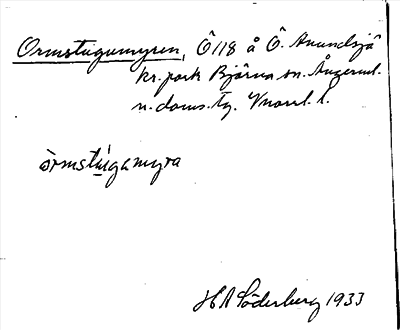 Ormstugumyren, Ö 118 å Ö. Anundsjö
kr.park Björna sn. Ångerml.
n. doms. tg. Vnorrl. l.
òrmstùgamyra
H A Söderberg 1933